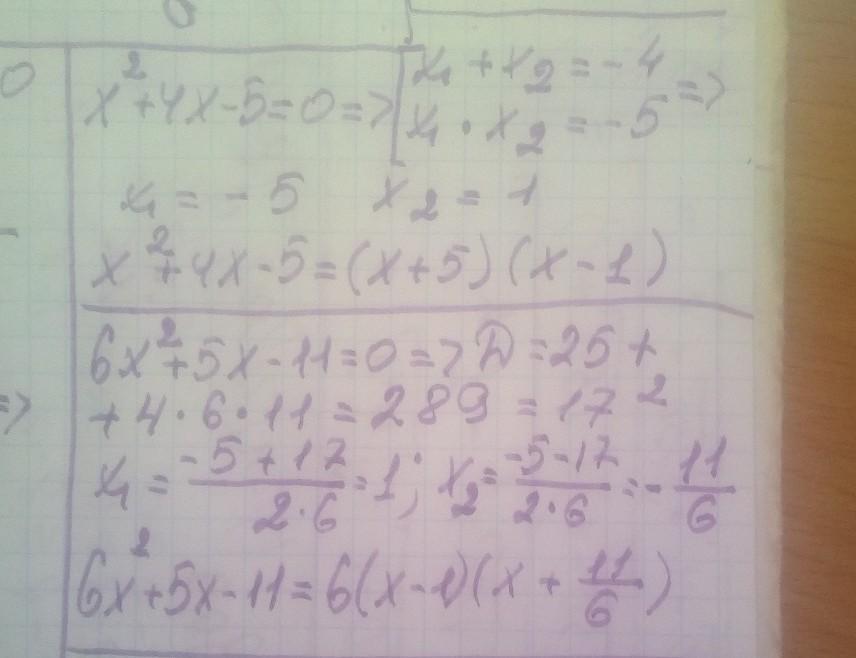 0
x²+4x-5=0=>[x₁+x₂=-4
x₁·x₂=-5 =>
x₁=-5 x₂=1
x²+4x-5=(x+5)(x-1)
6x²+5x-11=0=>D=25+
=>
+4·6·11=289=17²
x₁=\frac{-5+17}{2·6}=1; x₂=\frac{-5-17}{2·6}=-\frac{11}{6}
6x²+5x-11=6(x-1)(x+\frac{11}{6})